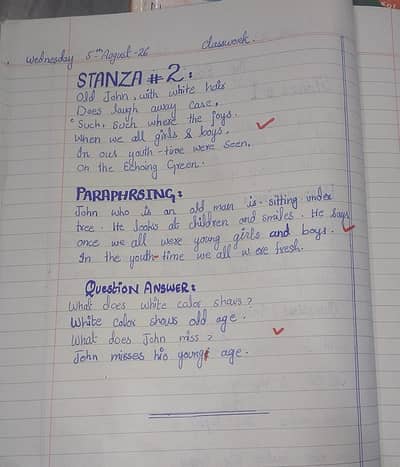 Wednesday 5th August-26 classwork.
STANZA # 2:
Old John, with white hair
Does laugh away case,
Such, such where the joys.
When we all girls & boys.
In our youth-time were seen,
On the Echoing Green.
PARAPHRSING:
John who is an old man is sitting under
tree. He looks at children and smiles. He says
once we all were young girls and boys.
In the youth-time we all were fresh.
QUESTION ANSWER:
What does white color shows?
White color shows old age.
What does John miss?
John misses his young age.